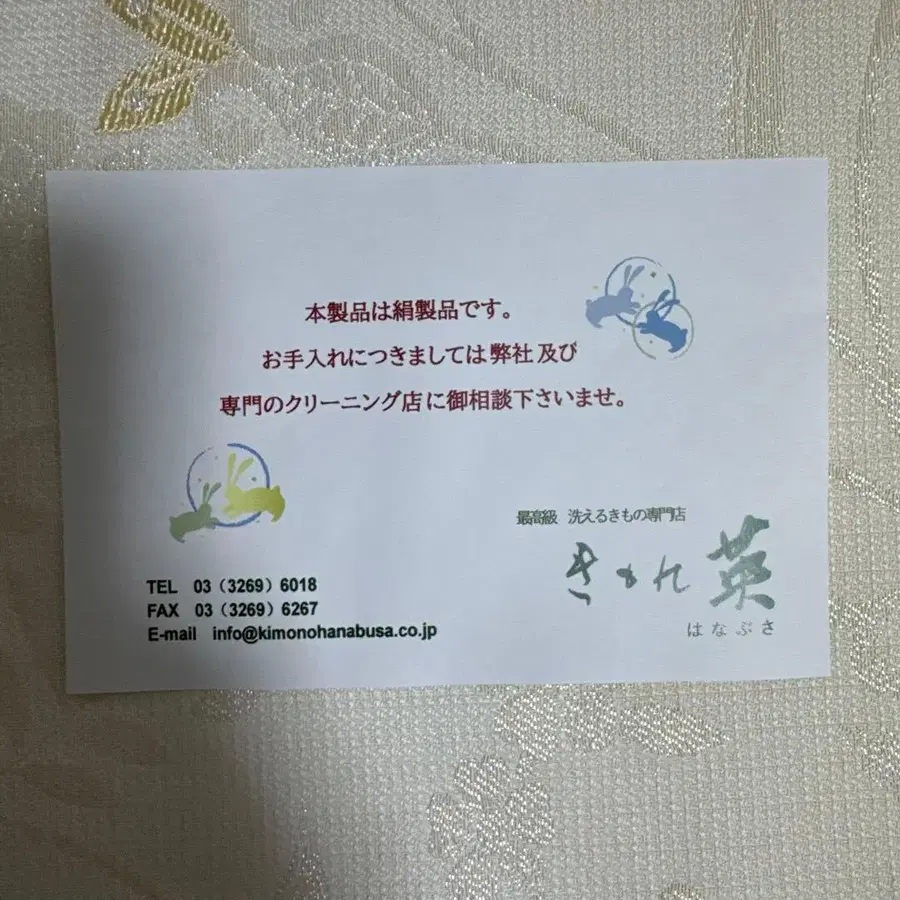 本製品は絹製品です。
お手入れにつきましては弊社及び
専門のクリーニング店に御相談下さいませ。
最高級 洗えるきもの専門店
きもの英
はなぶさ
TEL 03（3269）6018
FAX 03（3269）6267
E-mail info@kimonohanabusa.co.jp